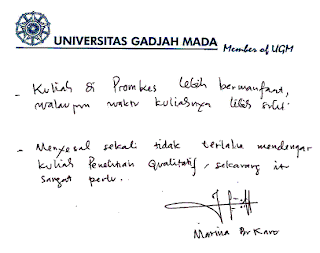 UNIVERSITAS GADJAH MADA Member of UGM
- Kuliah di Promkes lebih bermanfaat,
walaupun waktu kuliahnya lebih
- Menyesal sekali tidak terlalu mendengar
kuliah Penelitian Qualitatif, sekarang itu
sangat perlu..
Marina Br Karo